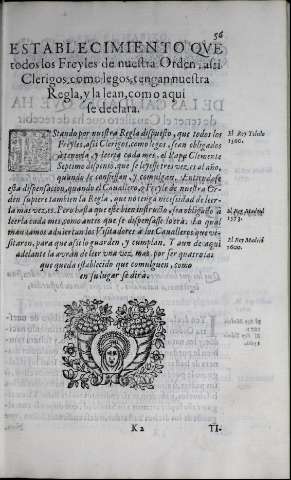 56
ESTABLECIMIENTO QVE
todos los Freyles de nuestra Orden, assi
Clerigos, como legos, tengan nuestra
Regla, y la lean, como aqui
se declara.
EStando por nuestra Regla dispuesto, que todos los
Freyles, assi Clerigos, como legos, sean obligados
a tenerla, y leerla cada mes, el Papa Clemente
Septimo dispensò, que se leyesse tres vezes al año,
quando se confiessan, y comulgan. Entiendase
esta dispensacion, quando el Cauallero, o Freyle de nuestra Or-
den supiere tambien la Regla, que no tenga necessidad de leer-
la mas vezes. Pero hasta que estè bien instructo, sea obligado a
leerla cada mes, como antes que se dispensasse sobrà: lo qual
mandamos aduiertan los Visitadores a los Caualleros que vi-
sitaren, para que assi lo guarden, y cumplan. Y aun de aqui
adelante la avràn de leer vna vez mas, por ser quatro las
que queda establecido que comulguen, como
en su lugar se dirà.
El Rey Toledo
1560.
El Rey Madrid
1573.
El Rey Madrid
1600.
K 2
TI-